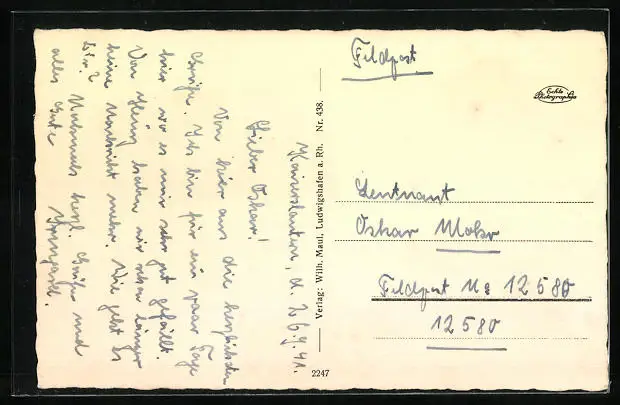 Kaiserslautern, d. 26.9.41.
Lieber Oskar!
Von hier aus die herzlichsten
Grüße. Ich bin für ein paar Tage
hier wo es mir sehr gut gefällt.
Von haben wir schon länger
keine Nachricht mehr. Wie geht es
Dir? Nochmals herzl. Grüße und
alles Gute Irmgard.
Verlag: Wilh. Maul, Ludwigshafen a. Rh. Nr. 438.
2247
Feldpost
Echte Photographie
Leutnant
Oskar Mohr
Feldpost Nr 12580
12580